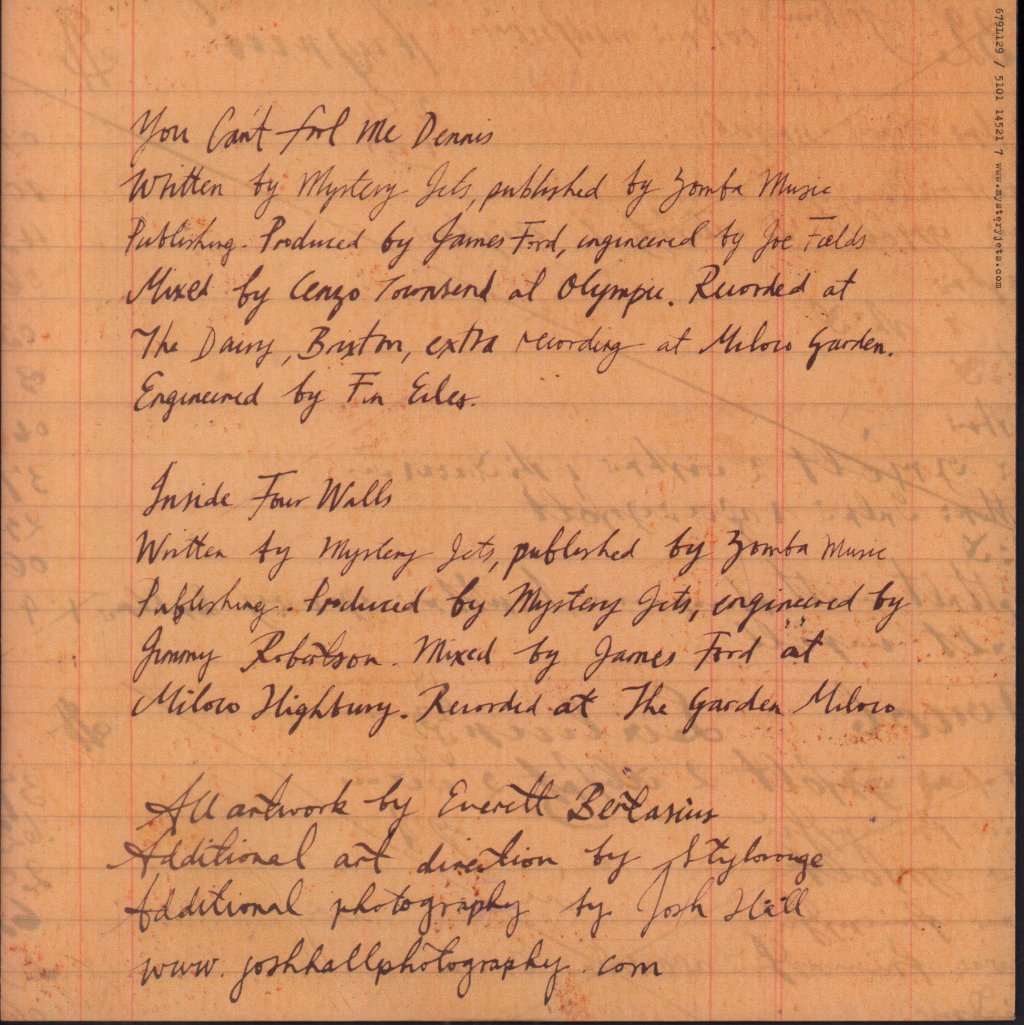 You Can't fool Me Dennis
Written by Mystery Jets, published by Zomba Music
Publishing. Produced by James Ford, engineered by Joe Fields
Mixed by Cenzo Townsend at Olympic. Recorded at
The Dairy, Brixton, extra recording at Miloco Garden.
Engineered by Fin Eiles.
Inside Four Walls
Written by Mystery Jets, published by Zomba Music
Publishing. Produced by Mystery Jets, engineered by
Jimmy Robertson. Mixed by James Ford at
Miloco Highbury. Recorded at The Garden Miloco
All artwork by Everett Bertasius
Additional art direction by Stylorouge
Additional photography by Josh Hall
www.joshhallphotography.com
679L129 / 5101 14521 7 www.mysteryjets.com